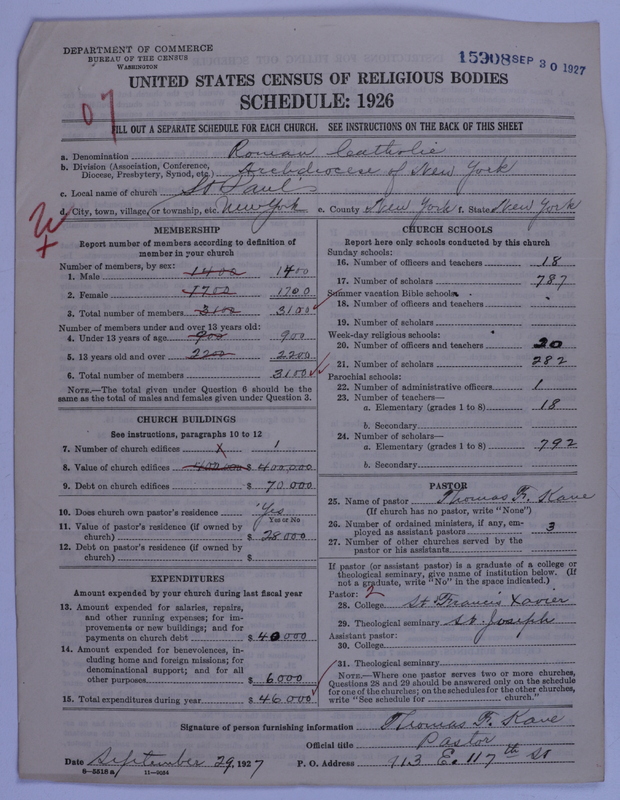 DEPARTMENT OF COMMERCE
BUREAU OF THE CENSUS
WASHINGTON
15908 SEP 30 1927
UNITED STATES CENSUS OF RELIGIOUS BODIES
SCHEDULE: 1926
07
FILL OUT A SEPARATE SCHEDULE FOR EACH CHURCH. SEE INSTRUCTIONS ON THE BACK OF THIS SHEET
a. Denomination Roman Catholic
b. Division (Association, Conference, Diocese, Presbytery, Synod, etc.) Archdiocese of New York
c. Local name of church St Pauls
d. City, town, village, or township, etc. New York e. County New York f. State New York
MEMBERSHIP
Report number of members according to definition of
member in your church.
Number of members, by sex:
1. Male 1400 1400
2. Female 1700 1700
3. Total number of members 3100 3100
Number of members under and over 13 years old:
4. Under 13 years of age 900 900
5. 13 years old and over 2200 2200
6. Total number of members 3100
NOTE.—The total given under Question 6 should be the
same as the total of males and females given under Question 3.
CHURCH BUILDINGS
See instructions, paragraphs 10 to 12
7. Number of church edifices X 1
8. Value of church edifices 400000 $ 400,000
9. Debt on church edifices $ 70,000
10. Does church own pastor's residence Yes
Yes or No
11. Value of pastor's residence (if owned by
church) $ 28000
12. Debt on pastor's residence (if owned by
church) $
EXPENDITURES
Amount expended by your church during last fiscal year
13. Amount expended for salaries, repairs,
and other running expenses; for im-
provements or new buildings; and for
payments on church debt $ 40000
14. Amount expended for benevolences, in-
cluding home and foreign missions; for
denominational support; and for all
other purposes $ 6000
15. Total expenditures during year $ 46,000
CHURCH SCHOOLS
Report here only schools conducted by this church
Sunday schools:
16. Number of officers and teachers 18
17. Number of scholars 787
Summer vacation Bible schools:
18. Number of officers and teachers
19. Number of scholars
Week-day religious schools:
20. Number of officers and teachers 20
21. Number of scholars 282
Parochial schools:
22. Number of administrative officers 1
23. Number of teachers—
a. Elementary (grades 1 to 8) 18
b. Secondary
24. Number of scholars—
a. Elementary (grades 1 to 8) 792
b. Secondary
PASTOR
25. Name of pastor Thomas F. Kane
(If church has no pastor, write "None")
26. Number of ordained ministers, if any, em-
ployed as assistant pastors 3
27. Number of other churches served by the
pastor or his assistants
If pastor (or assistant pastor) is a graduate of a college or
theological seminary, give name of institution below. (If
not a graduate, write "No" in the space indicated.)
Pastor: 2
28. College St Francis Xavier
29. Theological seminary St. Joseph
Assistant pastor:
30. College
31. Theological seminary
NOTE.—Where one pastor serves two or more churches,
Questions 28 and 29 should be answered only on the schedule
for one of the churches; on the schedules for the other churches,
write "See schedule for church."
Signature of person furnishing information Thomas F. Kane
Official title Pastor
Date September 29, 1927 P. O. Address 113 E. 117th St
8-5518a 11-9024